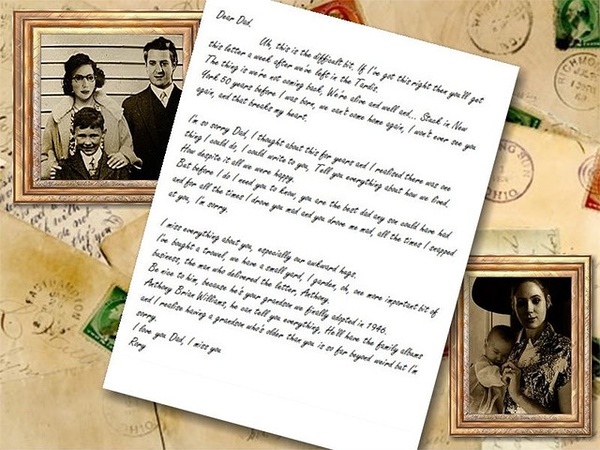 Dear Dad,
Uh, this is the difficult bit. If I've got this right then you'll get
this letter a week after we're left in the Tardis.
The thing is we're not coming back, We're alive and well and... Stuck in New
York 50 years before I was born, we can't come home again, I won't ever see you
again, and that breaks my heart.
I'm so sorry Dad, I thought about this for years and I realised there was one
thing I could do, I could write to you, Tell you everything about how we lived,
How despite it all we were happy.
But before I do I need you to know, you are the best dad any son could have had
and for all the times I drove you mad and you drove me mad, all the times I snapped
at you, I'm sorry.
I miss everything about you, especially our awkward hugs.
I've bought a trowel, we have a small yard, I garden, oh, one more important bit of
business, the man who delivered the letter, Anthony,
Be nice to him, because he's your grandson we finally adopted in 1946.
Anthony Brian Williams, he can tell you everything, He'll have the family albums
and I realise having a grandson who's older than you is so far beyond weird but I'm
sorry.
I love you Dad, I miss you
Rory
RICHMOND
OHIO